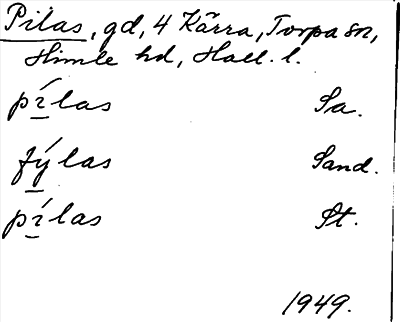 Pilas, gd, 4 Kärra, Torpa sn,
Himle hd, Hall. l.
pí̱las Sa.
fý̱las Sand.
pí̱las St.
1949.